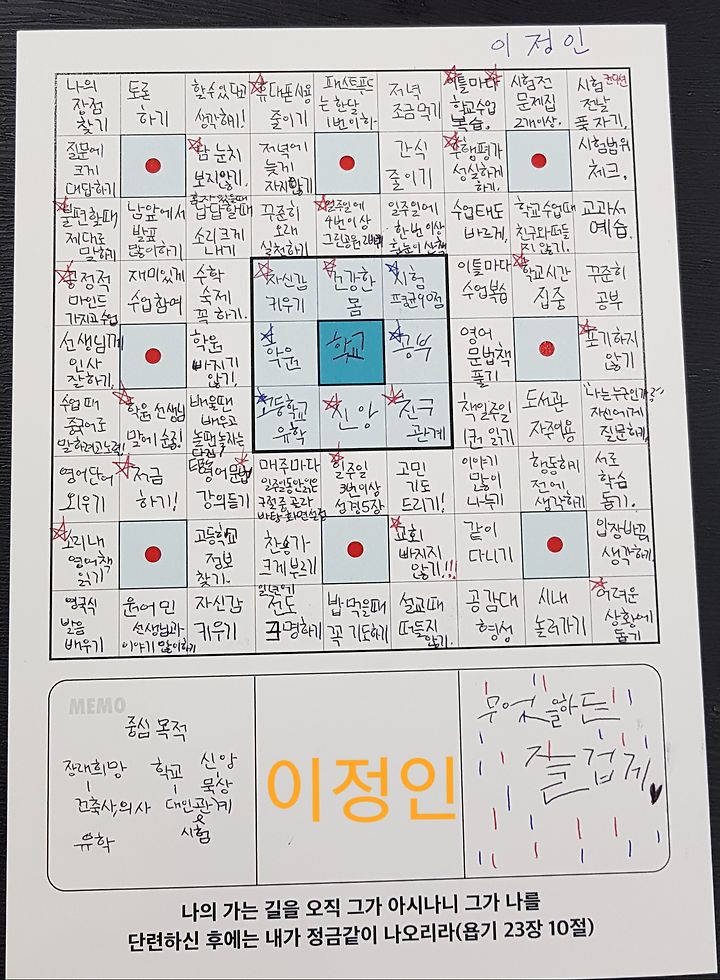 이정인
나의 장점 찾기
토론 하기
할수있다고 생각하기!
휴대폰사용 줄이기
패스트푸드는 한달 1번이하
저녁 조금먹기
이틀마다 학교수업 복습.
시험전 문제집 2개이상.
시험 전날 푹 자기.
컨디션
질문에 크게 대답하기
남 눈치 보지않기.
저녁에 늦게 자지않기
간식 줄이기
수행평가 성실하게 하게.
시험범위 체크.
불편할때 제대로 말하기
남앞에서 발표 많이하기
답답할때 소리크게 내기
꾸준히 오래 실천하기
일주일에 4번이상
일주일에 한번이상
수업태도 바르게,
학교수업때 친구와떠들지 않기.
교과서 예습.
긍정적 마인드 가지고수업
재미있게 수업참여
수학 숙제 꼭 하기.
자신감 키우기
건강한 몸
시험 평균90점
이틀마다 수업복습
학교시간 집중
꾸준히 공부
선생님께 인사 잘하기,
학원 빠지기 않기,
학원
학교
공부
영어 문법책 풀기
포기하지 않기
수업때 중국어로 말하려고노력!
학원 선생님 말에 순종.
배울땐 배우고 놀땐놀자는
고등학교 유학
신앙
친구 관계
책일주일 1권 읽기
도서관 자주이용
나는누구인가? 자신에게 질문하기,
영어단어 외우기
저금 하기!
영어문법 강의듣기
매주마다 일주일동안읽은 구절중 골라 바탕화면설정
일주일 3번이상 성경5장
고민 기도 드리기!
이야기 많이 나누기
행동하기 전에 생각하기
서로 학습 돕기.
소리내 영어책 읽기
고등학교 정보 찾기.
찬송가 크게부르기
교회 빠지지 않기!!!
같이 다니기
입장바꿔 생각하기.
영국식 발음 배우기
원어민 선생님과 이야기 많이하기
자신감 키우기
일년에 전도 4명하기
밥먹을때 꼭 기도하기
설교때 떠들지 않기.
공감대 형성
시내 놀러가기
어려운 상황에 돕기
MEMO
중심 목적
장래희망 학교 신앙
묵상
건축사,의사 대인관계
& 시험
유학
이정인
무엇을하든
즐겁게
나의 가는 길을 오직 그가 아시나니 그가 나를
단련하신 후에는 내가 정금같이 나오리라(욥기 23장 10절)